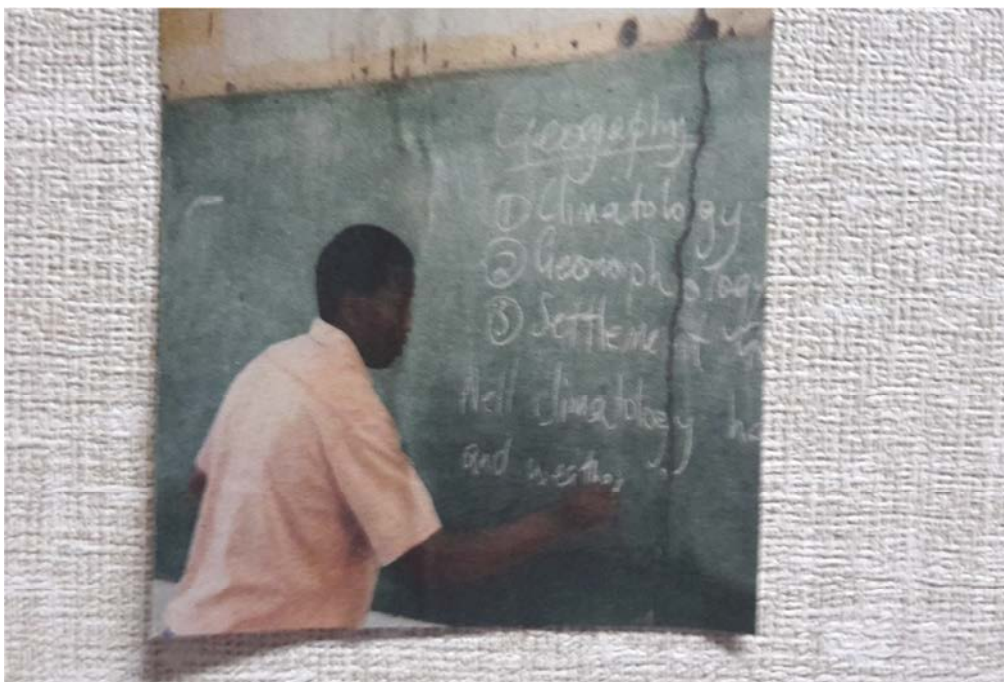 Geography
① Climatology
② Geomorphology
③ Settlement
Well climatology
and weather